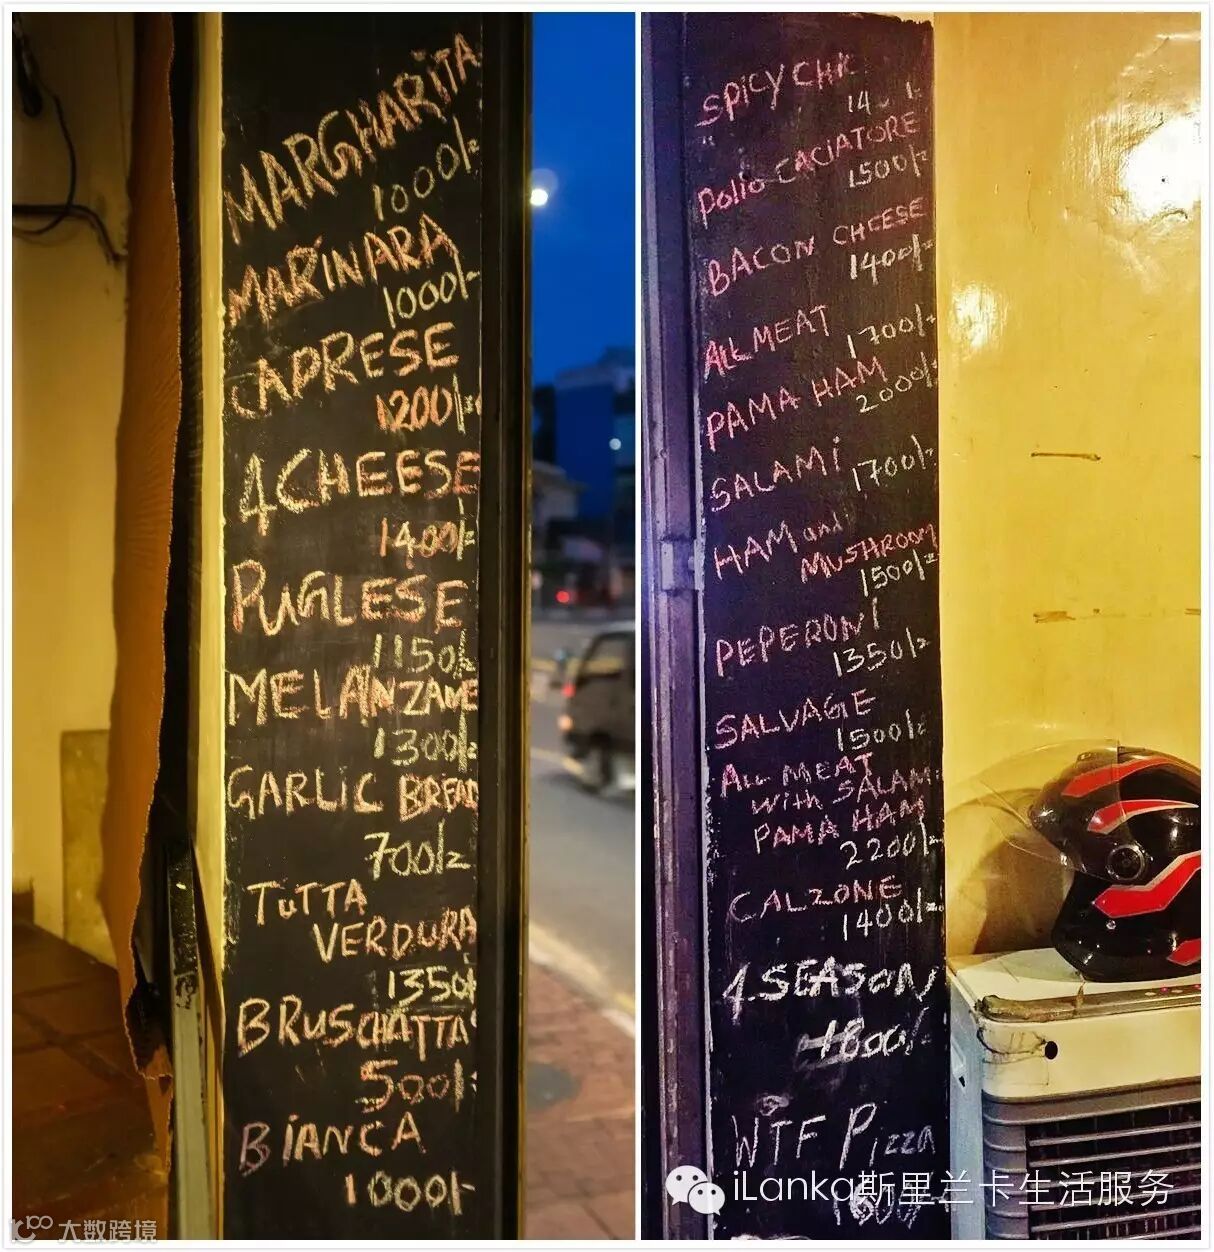 MARGHARITA
1000/=
MARINARA
1000/=
CAPRESE
1200/=
4 CHEESE
1400/=
PUGLESE
1150/=
MELANZANE
1300/=
GARLIC BREAD
700/=
TUTTA
VERDURA
1350/=
BRUSCHATTA
500/=
BIANCA
1000/=
SPICY CHK
POllO CACIATORE
1500/=
BACON CHEESE
1400/=
AllMEAT
1700/=
PAMA HAM
2000/=
SALAMI
1700/=
HAM and
MUSHROOM
1500/=
PEPERONI
1350/=
SALVAGE
1500/=
All MEAT
with SALAMI
PAMA HAM
2200/=
CALZONE
1400/=
4 SEASON
WTF Pizza
iLanka斯里兰卡生活服务
大数跨境